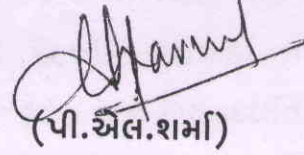 (પી.એલ.શર્મા)